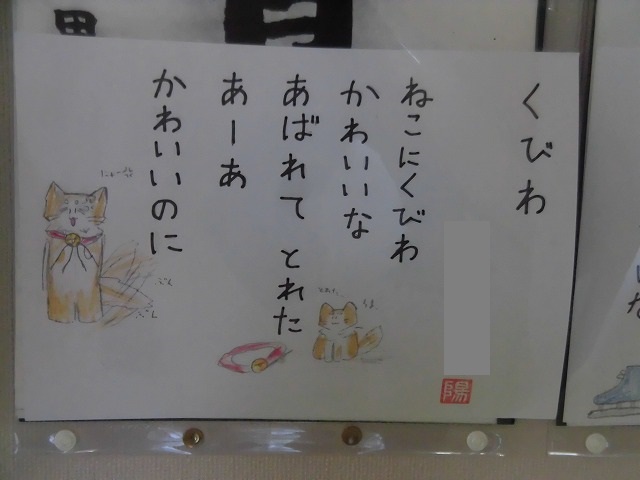 くびわ
ねこにくびわ
かわいいな
あばれて とれた
あーあ
かわいいのに
にゃー
ぶん
ぶん
とれた
陽